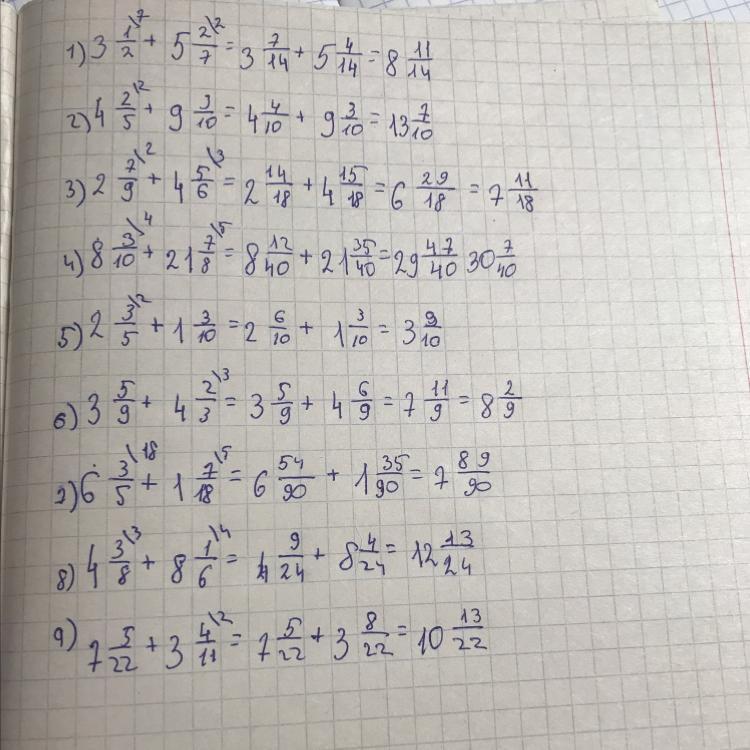 1) 3 1/2 \7 + 5 2/7 \2 = 3 7/14 + 5 4/14 = 8 11/14
2) 4 2/5 \2 + 9 3/10 = 4 4/10 + 9 3/10 = 13 7/10
3) 2 7/9 \2 + 4 5/6 \3 = 2 14/18 + 4 15/18 = 6 29/18 = 7 11/18
4) 8 3/10 \4 + 21 7/8 \5 = 8 12/40 + 21 35/40 = 29 47/40 30 7/40
5) 2 3/5 \2 + 1 3/10 = 2 6/10 + 1 3/10 = 3 9/10
6) 3 5/9 + 4 2/3 \3 = 3 5/9 + 4 6/9 = 7 11/9 = 8 2/9
7) 6 3/5 \18 + 1 7/18 \5 = 6 54/90 + 1 35/90 = 7 89/90
8) 4 3/8 \3 + 8 1/6 \4 = 4 9/24 + 8 4/24 = 12 13/24
9) 7 5/22 + 3 4/11 \2 = 7 5/22 + 3 8/22 = 10 13/22